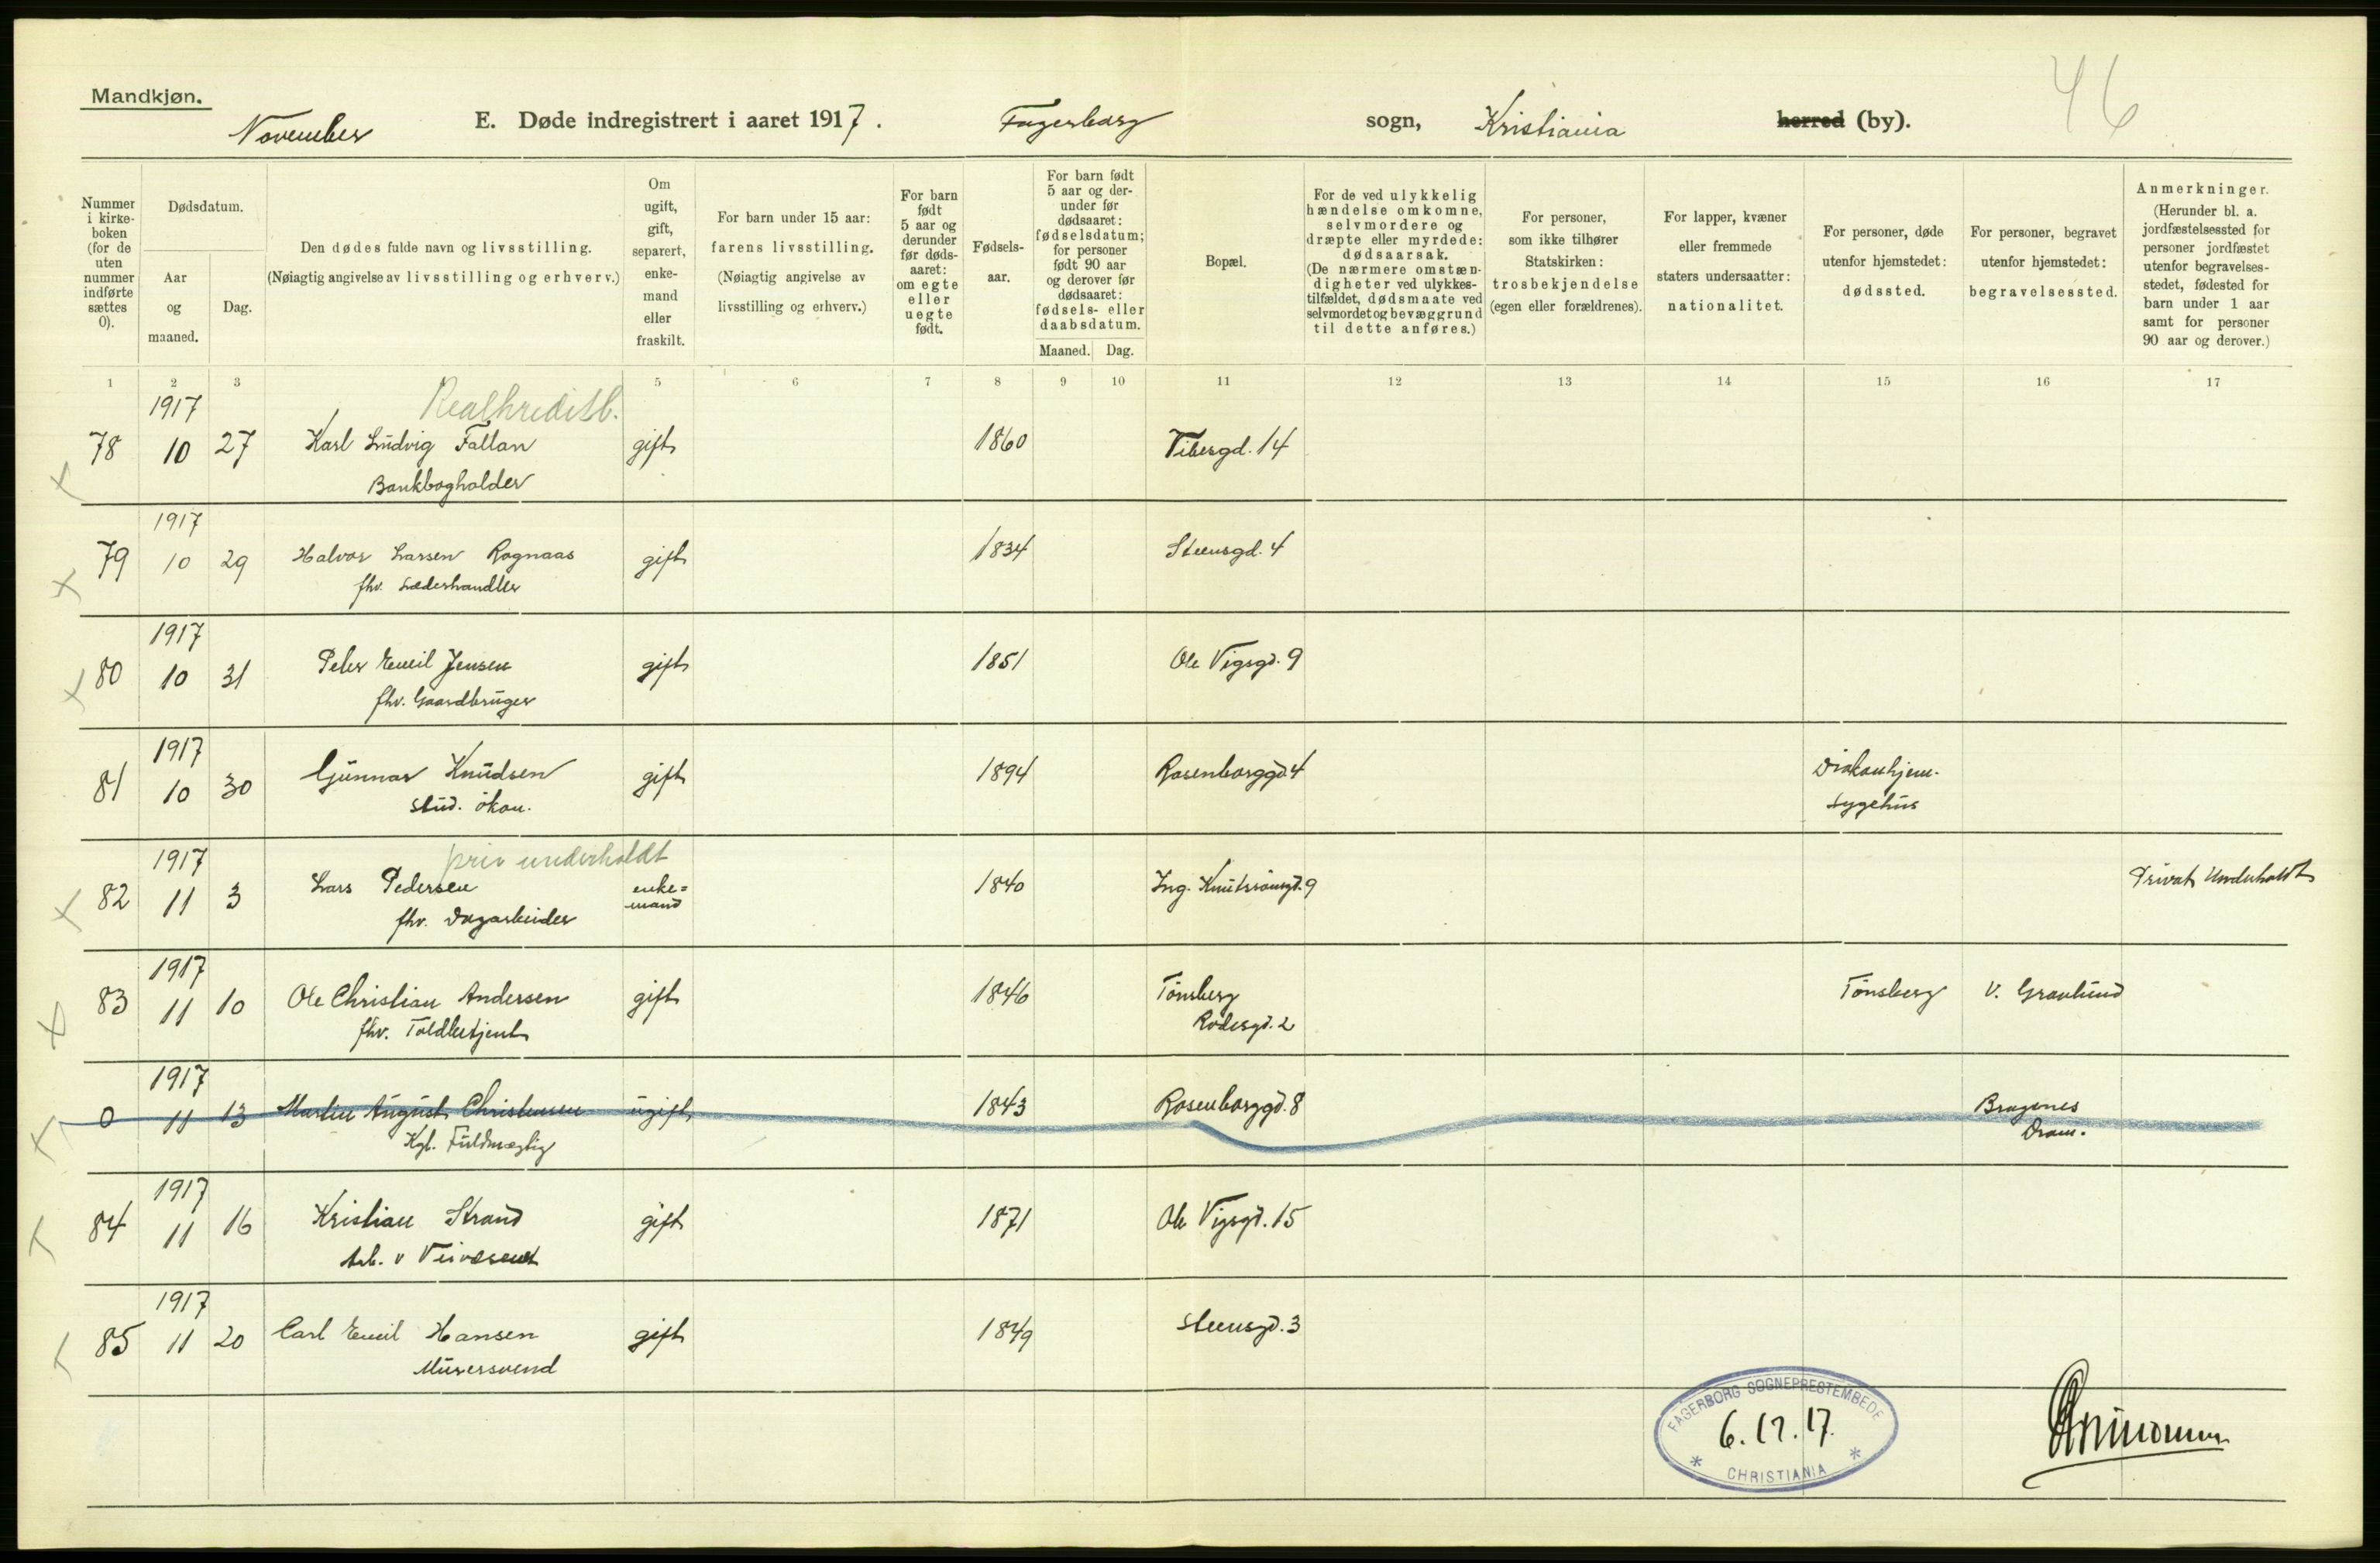 46
Mandkjøn.
November E. Døde indregistrert i aaret 1917. Fagerborg sogn, Kristiania herred (by).
Nummer i kirkeboken (for de uten nummer indførte sættes 0).
Dødsdatum.
Aar og maaned.
Dag.
Den dødes fulde navn og livsstilling.
(Nøiagtig angivelse av livsstilling og erhverv.)
Om ugift, gift, separert, enkemand eller fraskilt.
For barn under 15 aar:
farens livsstilling.
(Nøiagtig angivelse av livsstilling og erhverv.)
For barn født 5 aar og derunder før dødsaaret: om egte eller uegte født.
Fødselsaar.
For barn født 5 aar og derunder før dødsaaret: fødselsdatum; for personer født 90 aar og derover før dødsaaret: fødsels- eller daabsdatum.
Maaned. Dag.
Bopæl.
For de ved ulykkelig hændelse omkomne, selvmordere og dræpte eller myrdede: dødsaarsak.
(De nærmere omstændigheter ved ulykkestilfældet, dødsmaate ved selvmordet og bevæggrund til dette anføres.)
For personer, som ikke tilhører Statskirken: trosbekjendelse (egen eller forældrenes).
For lapper, kvæner eller fremmede staters undersaatter: nationalitet.
For personer, døde utenfor hjemstedet: dødssted.
For personer, begravet utenfor hjemstedet: begravelsessted.
Anmerkninger.
(Herunder bl. a. jordfæstelsessted for personer jordfæstet utenfor begravelsesstedet, fødested for barn under 1 aar samt for personer 90 aar og derover.)
1 2 3 5 6 7 8 9 10 11 12 13 14 15 16 17
1917 Realkreditb.
78 10 27 Karl Ludvig Fallan gift 1860 Vibesgd. 14
Bankbogholder
1917
79 10 29 Halvor Larsen Rognaas gift 1834 Steensgd. 4
fhv. Læderhandler
1917
80 10 31 Peter Emil Jensen gift 1851 Ole Vigsgd. 9
fhv. Gaardbruger
1917
81 10 30 Gunnar Knudsen gift 1894 Rosenborggd 4 Diakonhjem.
stud. økon. Sygehus
1917 priv underholdt
82 11 3 Lars Pedersen enke=mand 1840 Ing. 9 Privat Underholdt
fhv. Dagarbeider
1917
83 11 10 Ole Christian Andersen gift 1846 Tönsberg Tönsberg V. Gravlund
fhv. Toldbetjent Rodesgd. 2
1917
0 11 13 Martin August Christensen ugift 1843 Rosenborggd. 8 Bragenes
Kgl. Fuldmægtig Dram.
1917
84 11 16 Kristian Strand gift 1871 Ole Vigsgd. 15
Arb. v Veivæsenet
1917
85 11 20 Carl Emil Hansen gift 1849 Steensgd. 3
Murersvend
FAGERBORG SOGNEPRESTEMBEDE
6.12.17.
* CHRISTIANIA *